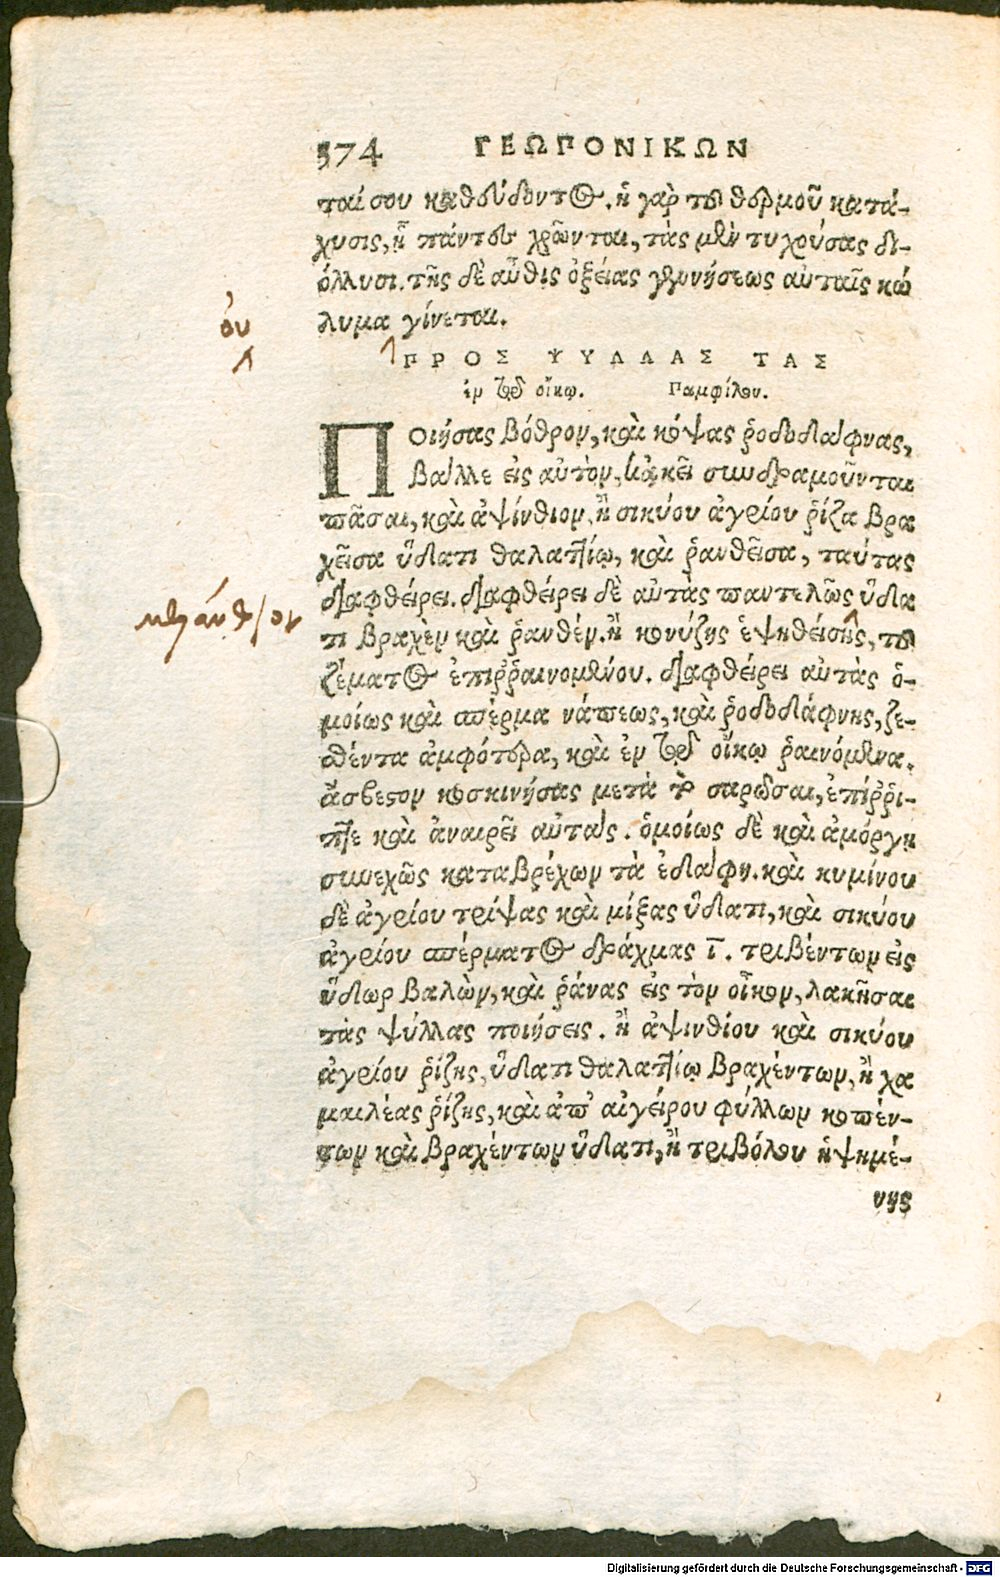 374 ΓΕΩΠΟΝΙΚΩΝ
ταί σου καθεύδοντος. ἡ γὰρ τοῦ θερμοῦ κατά-
χυσις, ᾗ πάντες χρῶνται, τὰς μὲν τυχούσας δι-
όλλυσι. τῆς δὲ αὖθις ὀξείας γεννήσεως αὐταῖς κώ
λυμα γίνεται.
οὐ
ΠΡΟΣ ΨΥΛΛΑΣ ΤΑΣ
ἐν τῷ οἴκῳ. Παμφίλου.
Ποιήσας βόθρον, καὶ κόψας ῥοδοδάφνας,
βάλλε εἰς αὐτὸν, κἀκεῖ συνδραμοῦνται
πᾶσαι, καὶ ἀψίνθιον, ἢ σικύου ἀγρίου ῥίζα βρα
χεῖσα ὕδατι θαλαττίῳ, καὶ ῥανθεῖσα, ταύτας
διαφθείρει. διαφθείρει δὲ αὐτὰς παντελῶς ὕδα
τι βραχὲν καὶ ῥανθέν. ἢ κονύζης ἑψηθείσης, τοῦ
ζέματος ἐπιῤῥαινομένου. διαφθείρει αὐτὰς ὁ-
μοίως καὶ σπέρμα νάπεως, καὶ ῥοδοδάφνης, ζε-
θέντα ἀμφότερα, καὶ ἐν τῷ οἴκῳ ῥαινόμενα.
ἄσβεστον κοσκινήσας μετὰ τὸ σαρῶσαι, ἐπίῤῥι-
πτε καὶ ἀναιρεῖ αὐτάς. ὁμοίως δὲ καὶ ἀμόργῃ
συνεχῶς καταβρέχων τὰ ἐδάφη. καὶ κυμίνου
δὲ ἀγρίου τρίψας καὶ μίξας ὕδατι, καὶ σικύου
ἀγρίου σπέρματος δράχμας ῑ. τριβέντων εἰς
ὕδωρ βαλὼν, καὶ ῥάνας εἰς τὸν οἶκον, λακῆσαι
τὰς ψύλλας ποιήσεις. ἢ ἀψινθίου καὶ σικύου
ἀγρίου ῥίζης, ὕδατι θαλαττίῳ βραχέντων, ἢ χα
μαιλέας ῥίζης, καὶ ἀπ' αἰγείρου φύλλων κοπέν-
των καὶ βραχέντων ὕδατι, ἢ τριβόλου ἡψημέ-
νης
Digitalisierung gefördert durch die Deutsche Forschungsgemeinschaft - DFG